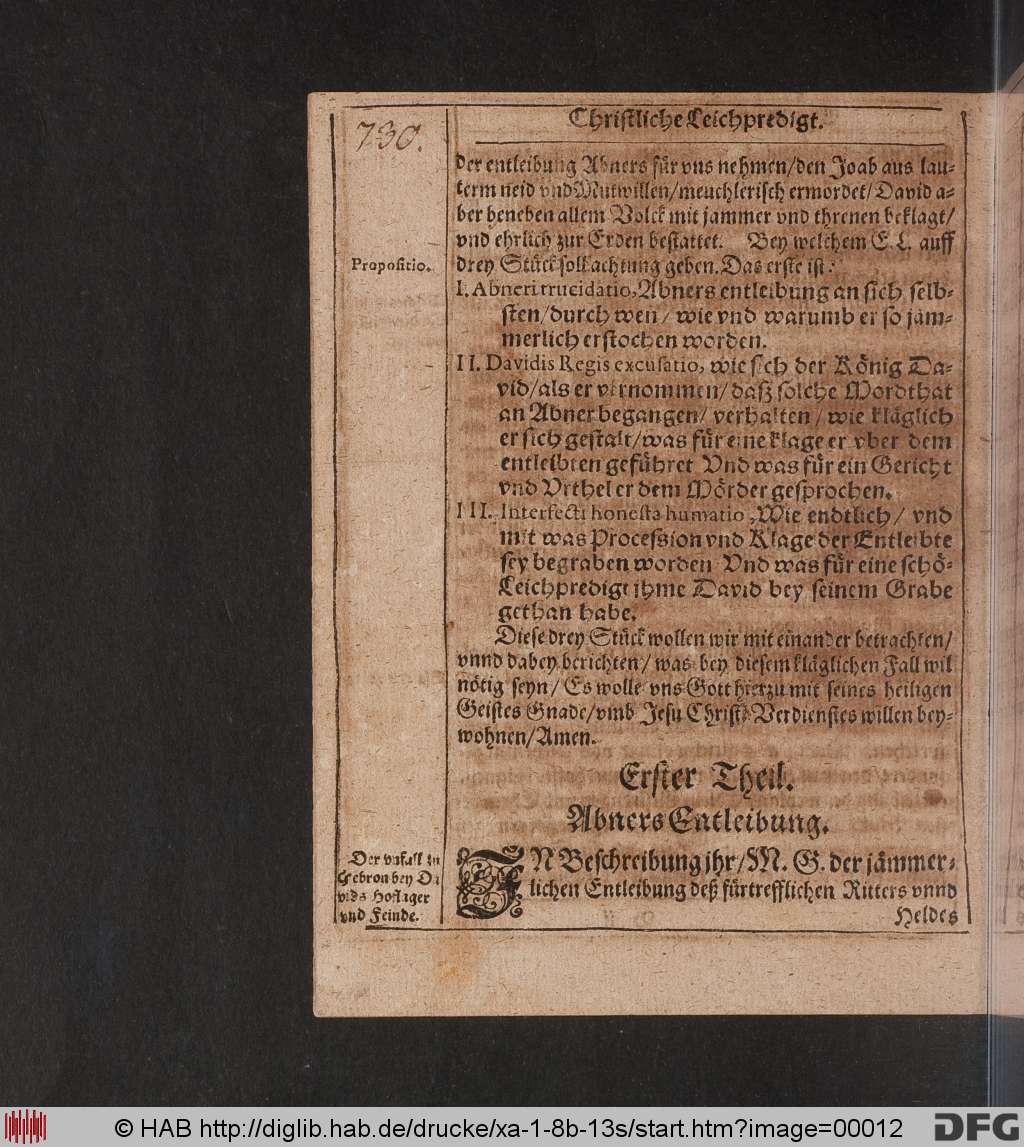 730.
Christliche Leichpredigt.
der entleibung Abners für vns nehmen/den Joab aus lau-
term neid vnd Mutwillen/meuchlerisch ermordet/David a-
ber beneben allem Volck mit jammer vnd threnen beklagt/
vnd ehrlich zur Erden bestattet. Bey welchem E. L. auff
Propositio.
drey Stück soll achtung geben. Das erste ist:
I. Abneri trucidatio, Abners entleibung an sich selb-
sten/durch wen/ wie vnd warumb er so jäm-
merlich erstochen worden.
II. Davidis Regis excusatio, wie sich der König Da-
vid/als er vernommen/daß solche Mordthat
an Abner begangen/ verhalten/ wie kläglich
er sich gestalt/was für eine klage er vber dem
entleibten geführet Vnd was für ein Gericht
vnd Vrthel er dem Mörder gesprochen.
III. Interfecti honesta humatio, Wie endtlich/ vnd
mit was Procession vnd Klage der Entleibte
sey begraben worden Vnd was für eine schö-
Leichpredigt ihme David bey seinem Grabe
gethan habe.
Diese drey Stück wollen wir mit einander betrachten/
vnnd dabey berichten/ was bey diesem kläglichen Fall wil
nötig seyn/ Es wolle vns Gott hierzu mit seines heiligen
Geistes Gnade/vmb Jesu Christi Verdienstes willen bey-
wohnen/Amen.
Erster Theil.
Abners Entleibung.
Der vnfall zu
Hebron bey Da
vids Hoflager
vnd Feinde.
IN Beschreibung jhr/M. G. der jämmer-
lichen Entleibung deß fürtrefflichen Ritters vnnd
Heldes
© HAB http://diglib.hab.de/drucke/xa-1-8b-13s/start.htm?image=00012
DFG